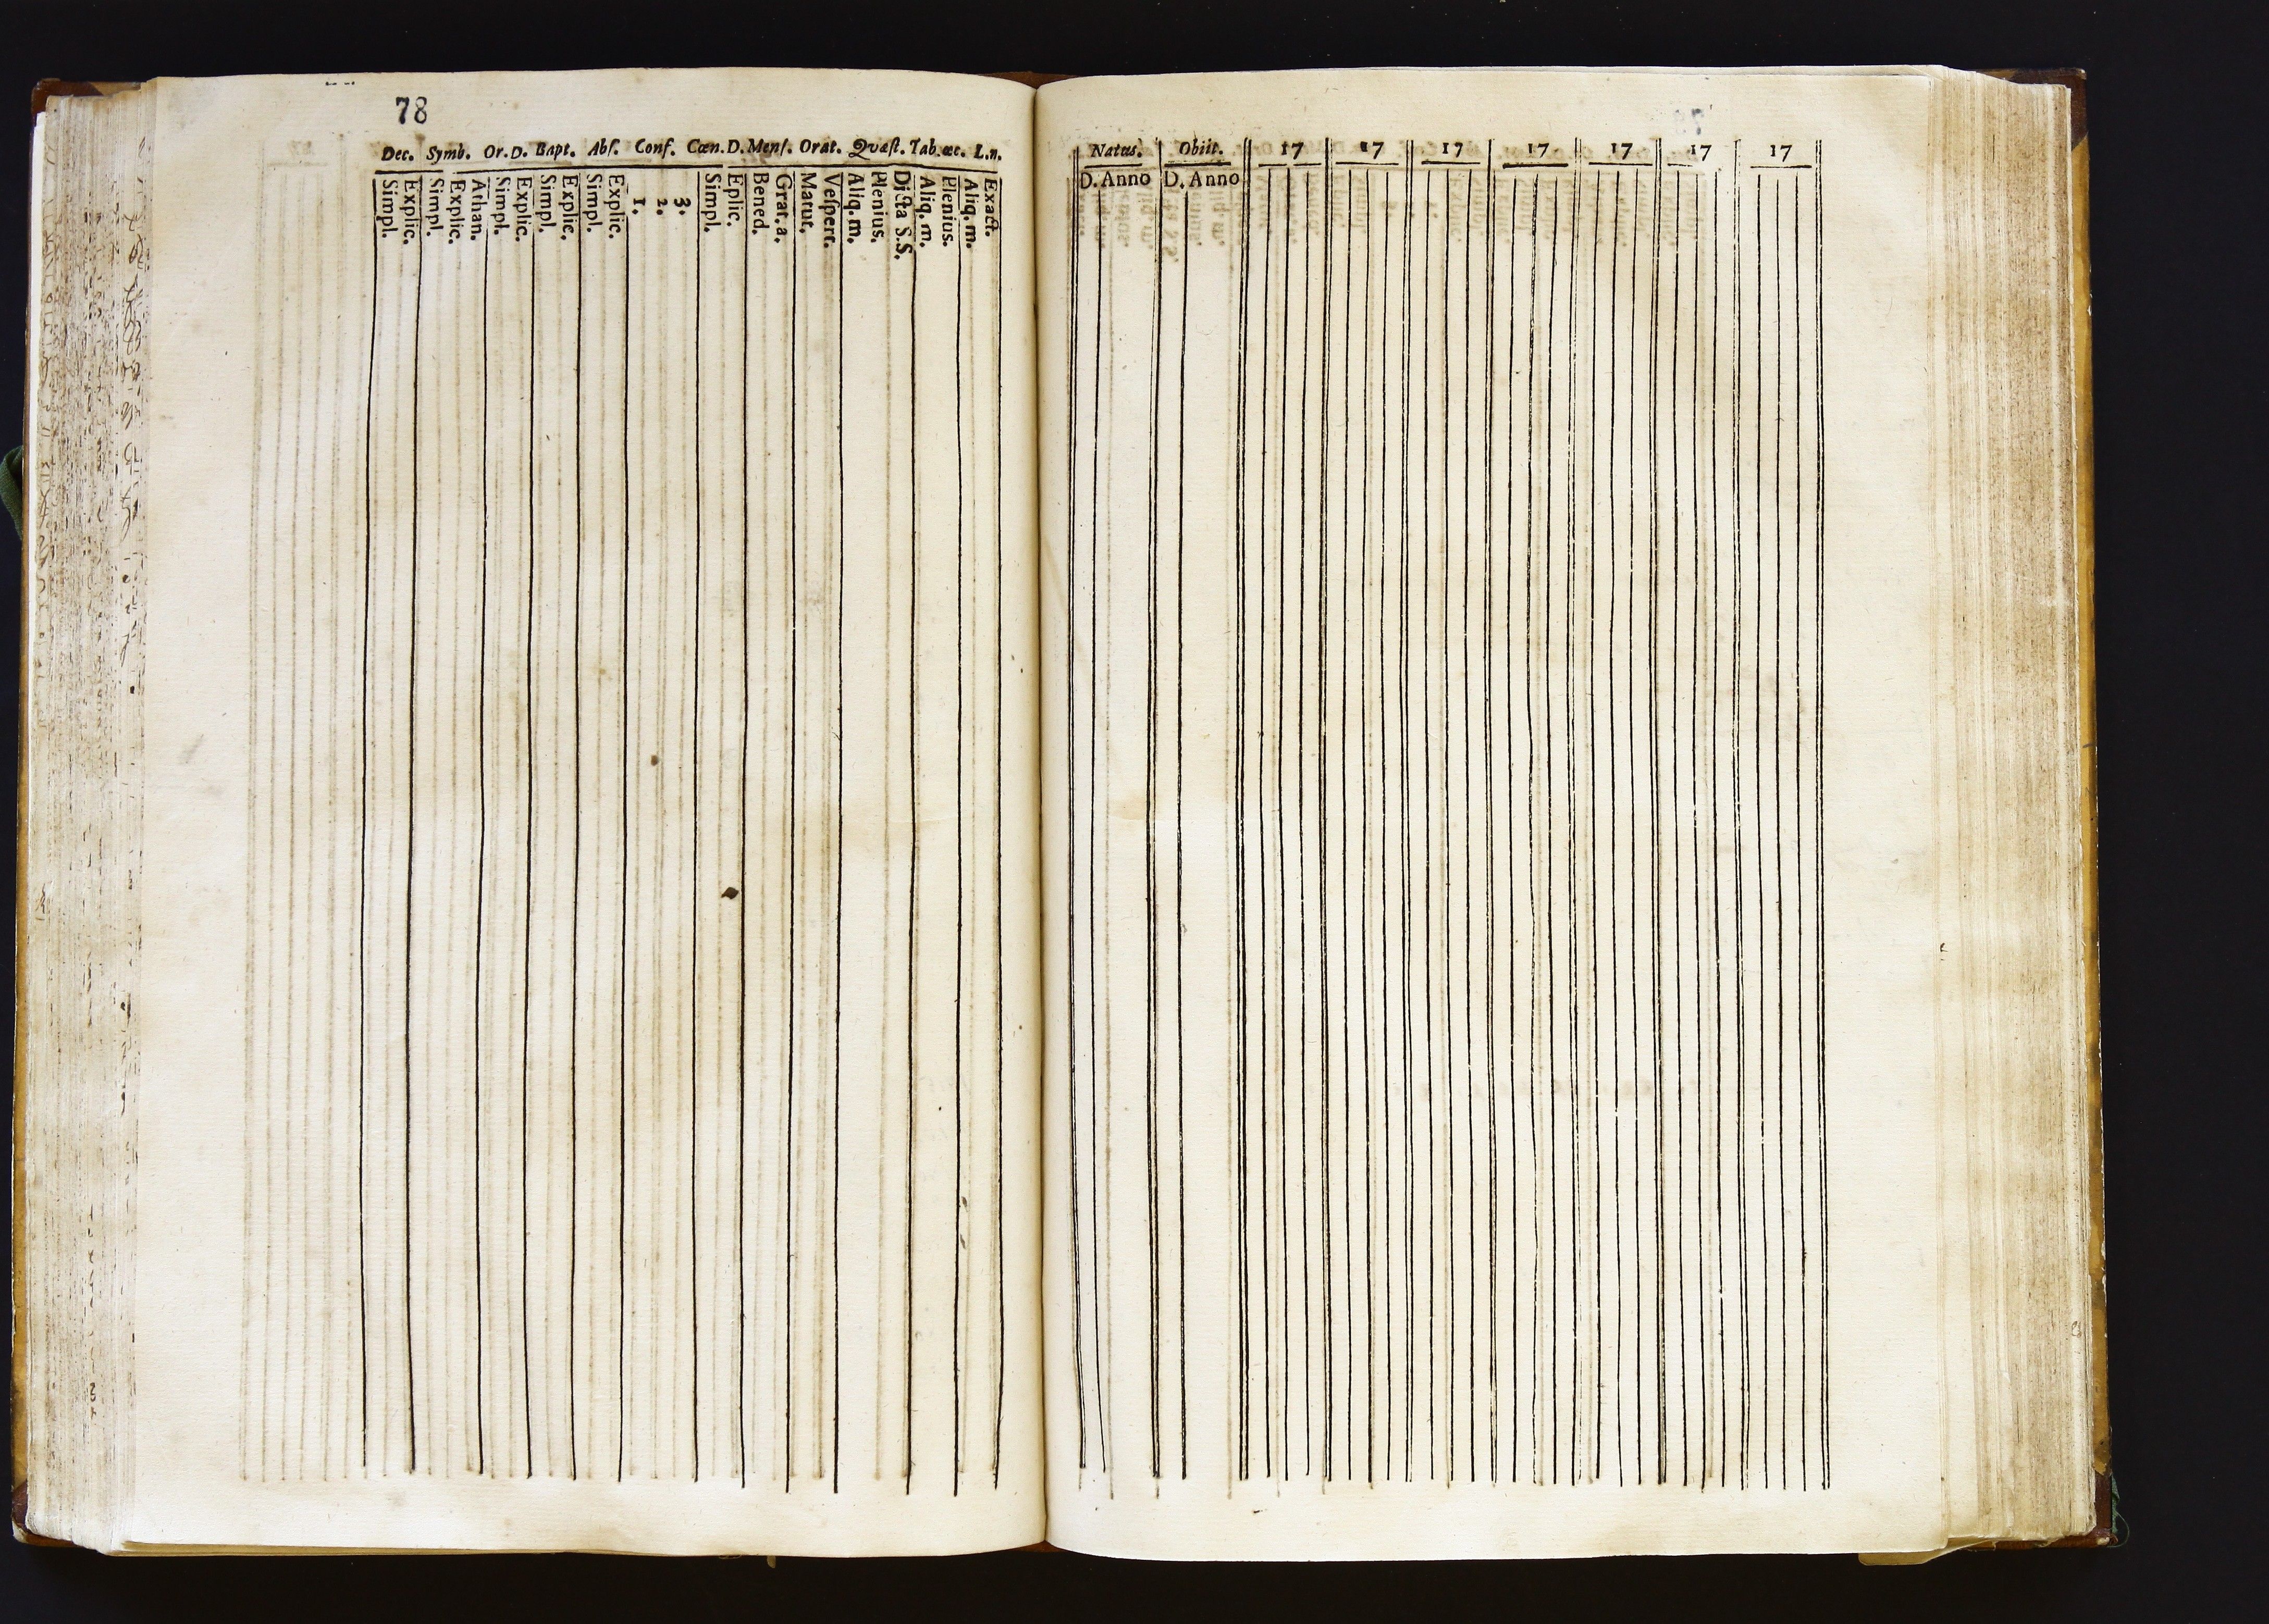 78
Dec. Symb. Or. D. Bapt. Abſ. Conf. Cœn. D. Menſ. Orat. Qvæſt. Tab. œc. L. n.
Simpl.
Explic.
Simpl.
Explic.
Athan.
Simpl.
Explic.
Simpl.
Explic.
Simpl.
Explic.
1.
2.
3.
Simpl.
Eplic.
Bened.
Grat. a.
Matut.
Veſpert.
Aliq. m.
Plenius.
Dicta S.S.
Aliq. m.
Plenius.
Aliq. m.
Exact.
Natus. Obiit. 17 17 17 17 17 17 17
D. Anno D. Anno